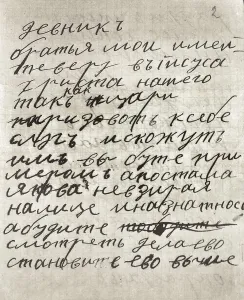 2
девникъ
братья мои имей
те веру въ iисуса
христа нашего
такъ как цари
к себе
слугъ и скожутъ
имъ вы буте при
мером апостала
якова невзирая
на лице и назнатнос
а будите
смотреть дела ево
становите ево выше